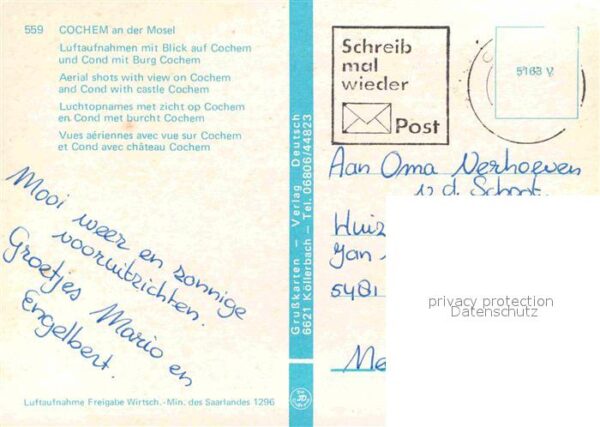 559 COCHEM an der Mosel
Luftaufnahmen mit Blick auf Cochem
und Cond mit Burg Cochem
Aerial shots with view on Cochem
and Cond with castle Cochem
Luchtopnames met zicht op Cochem
en Cond met burcht Cochem
Vues aériennes avec vue sur Cochem
et Cond avec château Cochem
Mooi weer en zonnige
vooruitzichten.
Groetjes Mario en
Engelbert.
Luftaufnahme Freigabe Wirtsch.-Min. des Saarlandes 1296
Grußkarten – Verlag Deutsch
6621 Köllerbach – Tel. 06806/44823
Schreib
mal
wieder
Post
5163 V
Aan Oma Verhoeven
v.d. Schoot
Huiz
Jan
5481
Ne
privacy protection
Datenschutz